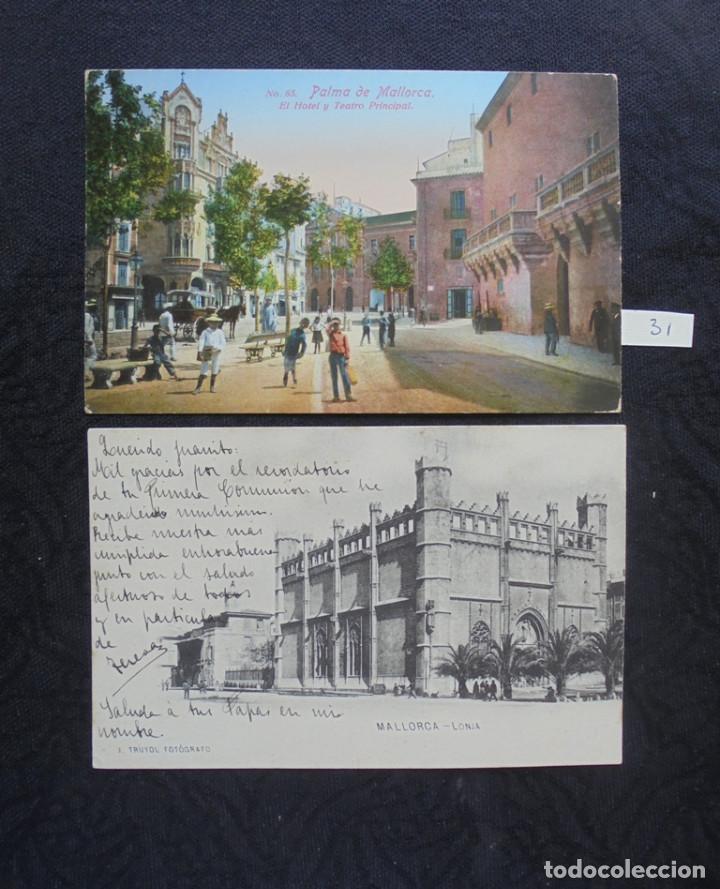 No. 65. Palma de Mallorca.
El Hotel y Teatro Principal.
31
Querido Juanito:
Mil gracias por el recordatorio
de tu Primera Comunión que he
agradecido muchísimo.
Recibe nuestra más
cumplida enhorabuena
junto con el saludo
afectuoso de todos
y en particular
de
Teresa
Saluda á tus Papas en mi
nombre.
MALLORCA – LONJA
J. TRUYOL FOTÓGRAFO
todocoleccion